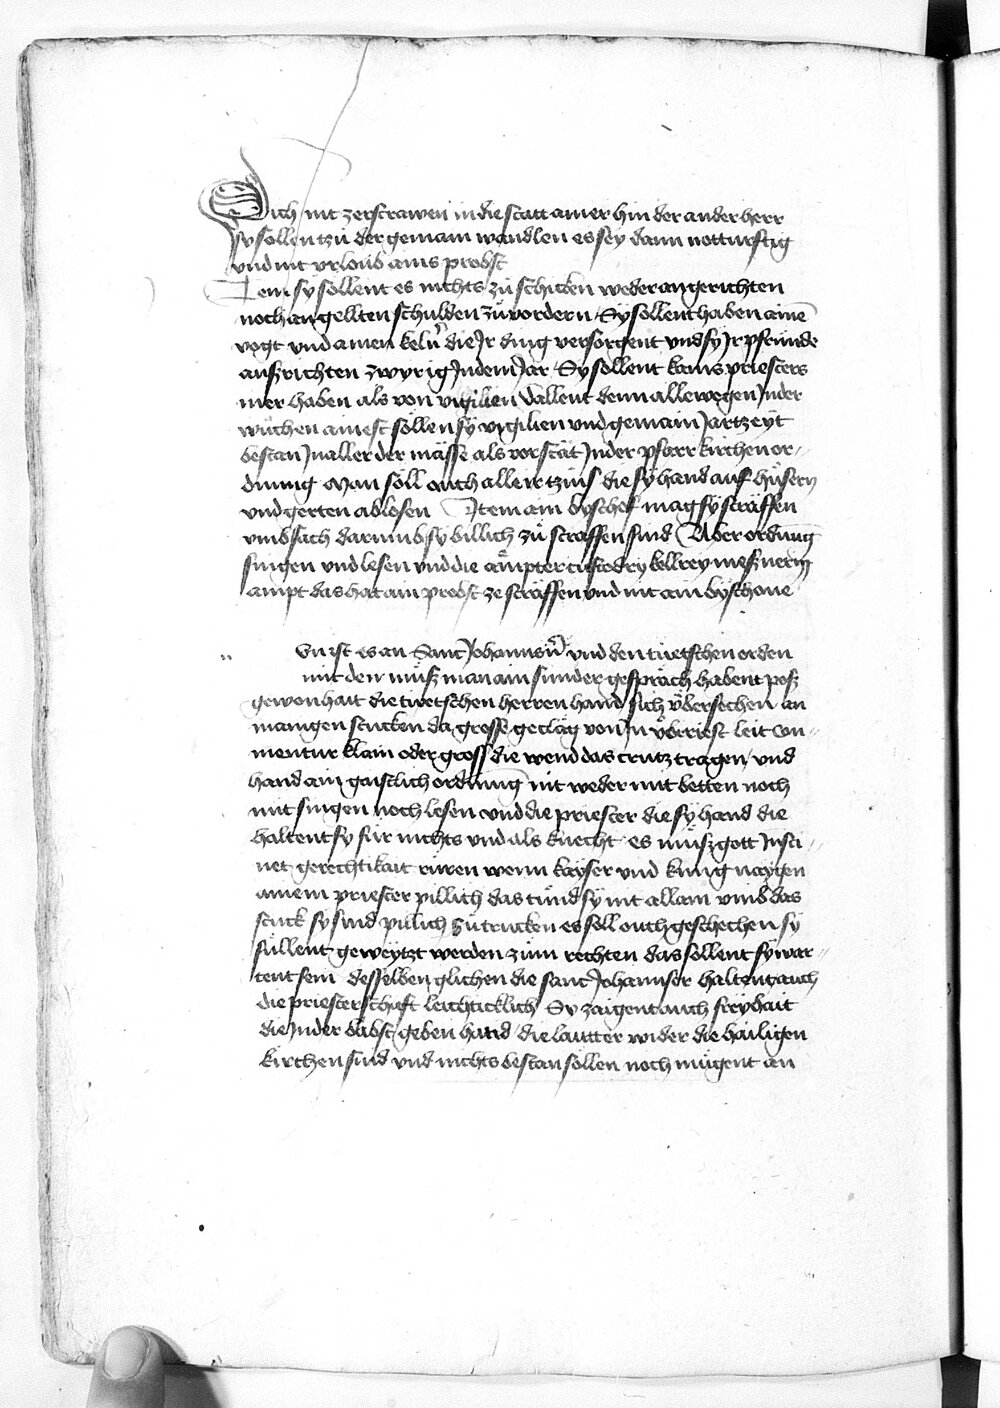 Sich nit zerstrawen in die statt ainer hin der ander herr
sy sollen tzů der gemain wandlen es sey dann notturftig
vnd mit vrloub ains probst
Item sy sollent es nichts zů schicken weder an gerichten
noch an gellten schulden zů vordern Sy sollent haben ainē
vogt vnd ainen kelr̄ die Jr ding versorgent vnd sy Jr pfründe
ausz richten zwyrig Jndem Jar Sy sollent kains priesters
mer haben als von vigilien vallent denn allewegen Jnder
wůchen ainest söllen sy vigilien vnd gemain Jartzeyt
bestan Jn aller der mässe als vorstāt Jnder pfarrkirchen or-
dnung Man soll ouch alle ir tzins die sy hand auf hüsern
vnd gerten ablösen Item ain byschof mag sy straffen
vmb sach darumb sy billich zů straffen sind Aber ordnūng
singen vnd lesen vnd die ämpter custedry kellrey meszneriy
ampt das hat ain probst ze straffen vnd nit ain byschoue
Vn ist es an Sant Johannsn̄ vnd den tüetschen orden
mit den můsz man ain sunder gespräch habent posz
gewonhait die tüetschen herren hand sich übersechen an
manigen stucken da grosse geclag von Jn überriest leit Con-
mentur klain oder gross die wend das crütz tragen vnd
hand ain gaistlich ordnūng nit weder mit betten noch
mit singen noch lesen vnd die priester die sy hand die
haltent sy für nichts vnd als knecht es můsz gott Jn sei-
ner gerechtikait rüren wenn kayser vnd kunig naygen
ainem priester pillich das tůnd sy nit allain vmb das
stuck sy sind pillich zů trucken es soll ouch geschechen sy
süllent geweytzt werden zům rechten das sollent sy war-
tent sein desselben glichen die sant Johannser haltent auch
die priesterschaft leichticklich Sy zaigent auch freyhait
die Jnder bäbst geben hand die lautter wider die hailigen
kirchen sind vnd nichts bestan söllen noch mügent an